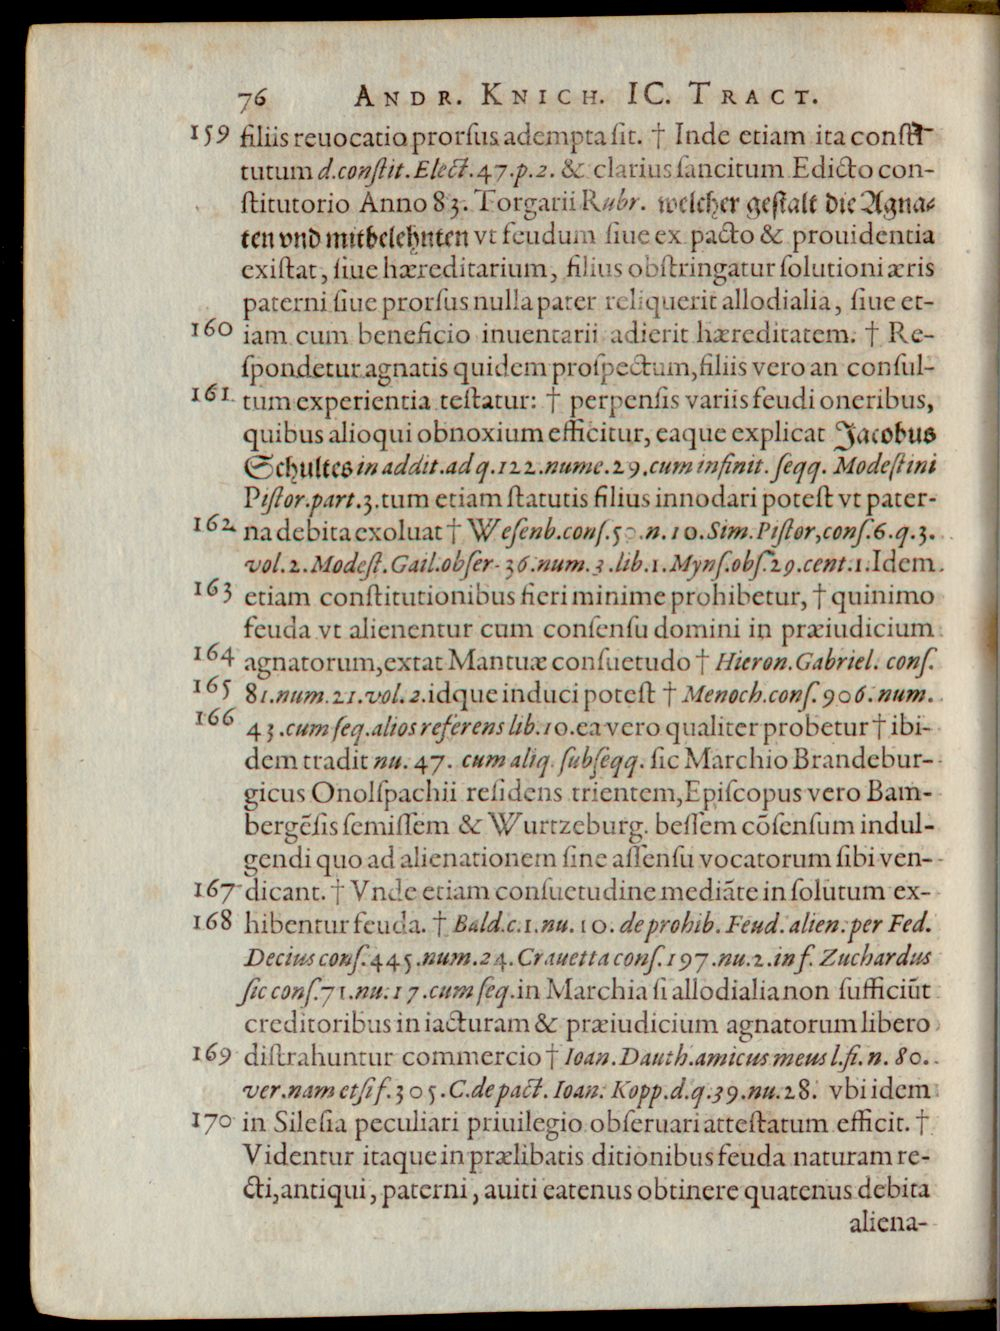 76 ANDR. KNICH. IC. TRACT.
159 filiis reuocatio prorſus adempta ſit. † Inde etiam ita conſti-
tutum d.conſtit. Elect. 47. p. 2. & clarius ſancitum Edicto con-
ſtitutorio Anno 83. Torgarii Rubr. welcher geſtalt die Agna-
ten vnd mitbelehnten vt feudum ſiue ex pacto & prouidentia
exiſtat, ſiue hæreditarium, filius obſtringatur ſolutioni æris
paterni ſiue prorſus nulla pater reliquerit allodialia, ſiue et-
160 iam cum beneficio inuentarii adierit hæreditatem. † Re-
ſpondetur agnatis quidem proſpectum, filiis vero an conſul-
161 tum experientia teſtatur: † perpenſis variis feudi oneribus,
quibus alioqui obnoxium efficitur, eaque explicat Jacobus
Schultes in addit. ad q. 122. nume. 29. cum infinit. ſeqq. Modeſtini
Piſtor. part. 3. tum etiam ſtatutis filius innodari poteſt vt pater-
162 na debita exoluat † Weſenb. conſ. 50. n. 10. Sim. Piſtor, conſ. 6. q. 3.
vol. 2. Modeſt. Gail. obſer. 36. num. 3. lib. 1. Mynſ. obſ. 29. cent. 1. Idem
163 etiam conſtitutionibus fieri minime prohibetur, † quinimo
feuda vt alienentur cum conſenſu domini in præiudicium
164 agnatorum, extat Mantuæ conſuetudo † Hieron. Gabriel. conſ.
165 81. num. 21. vol. 2. idque induci poteſt † Menoch. conſ. 906. num.
166 43. cum ſeq. alios referens lib. 10. ea vero qualiter probetur † ibi-
dem tradit nu. 47. cum aliq. ſubſeqq. ſic Marchio Brandebur-
gicus Onolſpachii reſidens trientem, Epiſcopus vero Bam-
bergẽſis ſemiſſem & Wurtzeburg. beſſem cõſenſum indul-
gendi quo ad alienationem ſine aſſenſu vocatorum ſibi ven-
167 dicant. † Vnde etiam conſuetudine mediãte in ſolutum ex-
168 hibentur feuda. † Bald. c. 1. nu. 10. de prohib. Feud. alien. per Fed.
Decius conſ. 445. num. 24. Crauetta conſ. 197. nu. 2. in f. Zuchardus
ſic conſ. 71. nu. 17. cum ſeq. in Marchia ſi allodialia non ſufficiũt
creditoribus in iacturam & præiudicium agnatorum libero
169 diſtrahuntur commercio † Ioan. Dauth. amicus meus l. fi. n. 80.
ver. nam etſi f. 305. C. de pact. Ioan. Kopp. d. q. 39. nu. 28. vbi idem
170 in Sileſia peculiari priuilegio obſeruari atteſtatum efficit. †
Videntur itaque in prælibatis ditionibus feuda naturam re-
cti, antiqui, paterni, auiti eatenus obtinere quatenus debita
aliena-